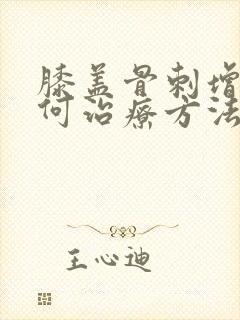 膝盖骨刺增
何治疗方法
王心迪